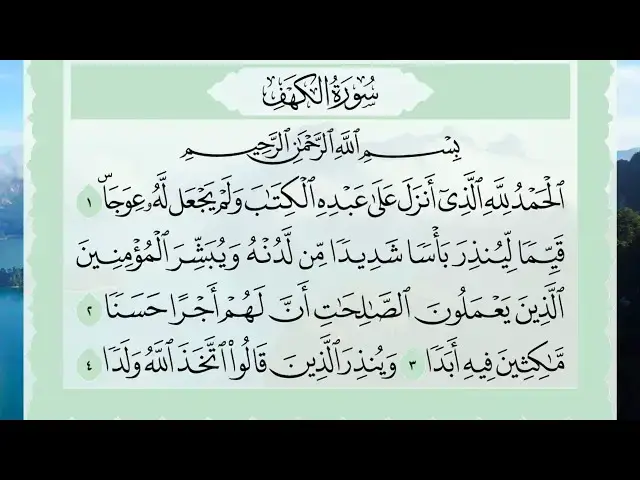 سُورَةُ الكَهْفِ
بِسْمِ ٱللَّهِ ٱلرَّحْمَٰنِ ٱلرَّحِيمِ
ٱلْحَمْدُ لِلَّهِ ٱلَّذِىٓ أَنزَلَ عَلَىٰ عَبْدِهِ ٱلْكِتَٰبَ وَلَمْ يَجْعَل لَّهُۥ عِوَجَاۜ ١
قَيِّمًا لِّيُنذِرَ بَأْسًا شَدِيدًا مِّن لَّدُنْهُ وَيُبَشِّرَ ٱلْمُؤْمِنِينَ
ٱلَّذِينَ يَعْمَلُونَ ٱلصَّٰلِحَٰتِ أَنَّ لَهُمْ أَجْرًا حَسَنًا ٢
مَّٰكِثِينَ فِيهِ أَبَدًا ٣ وَيُنذِرَ ٱلَّذِينَ قَالُوا۟ ٱتَّخَذَ ٱللَّهُ وَلَدًا ٤